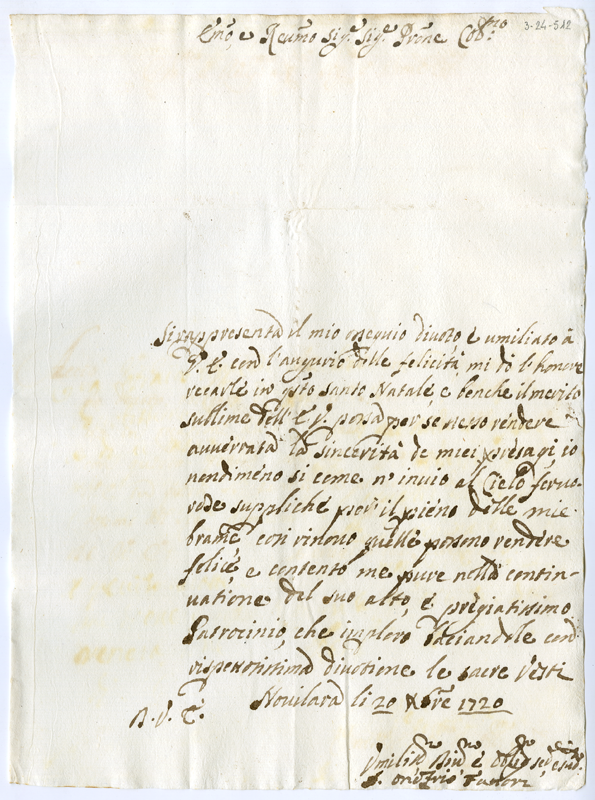 Emo, e Reumo Sigr. Sigr. Prone Cobmo
3-24-512
Si rappresenta il mio ossequio divoto e umiliato à
V. E. con l'augurio delle felicità, mi dò l'honore
recarle in qsto Santo Natale, e benche il merito
sublime dell'E. V. possa per se stesso rendere
avverrata la sincerità de miei presagi, io
nondimeno si come n'invio al Cielo fervo-
rose suppliche por il pieno delle mie
brame, così
quelle possono rendere
felice, e contento me pure nella contin-
uatione del suo alto, e pregiatissimo
Patrocinio, che imploro baciandole con
rispettosissima divotione le sacre Vesti
Novilara li 20 Xbre 1720
B. V. E.
Umilis. Div. e oblig. se
D. Onofrio